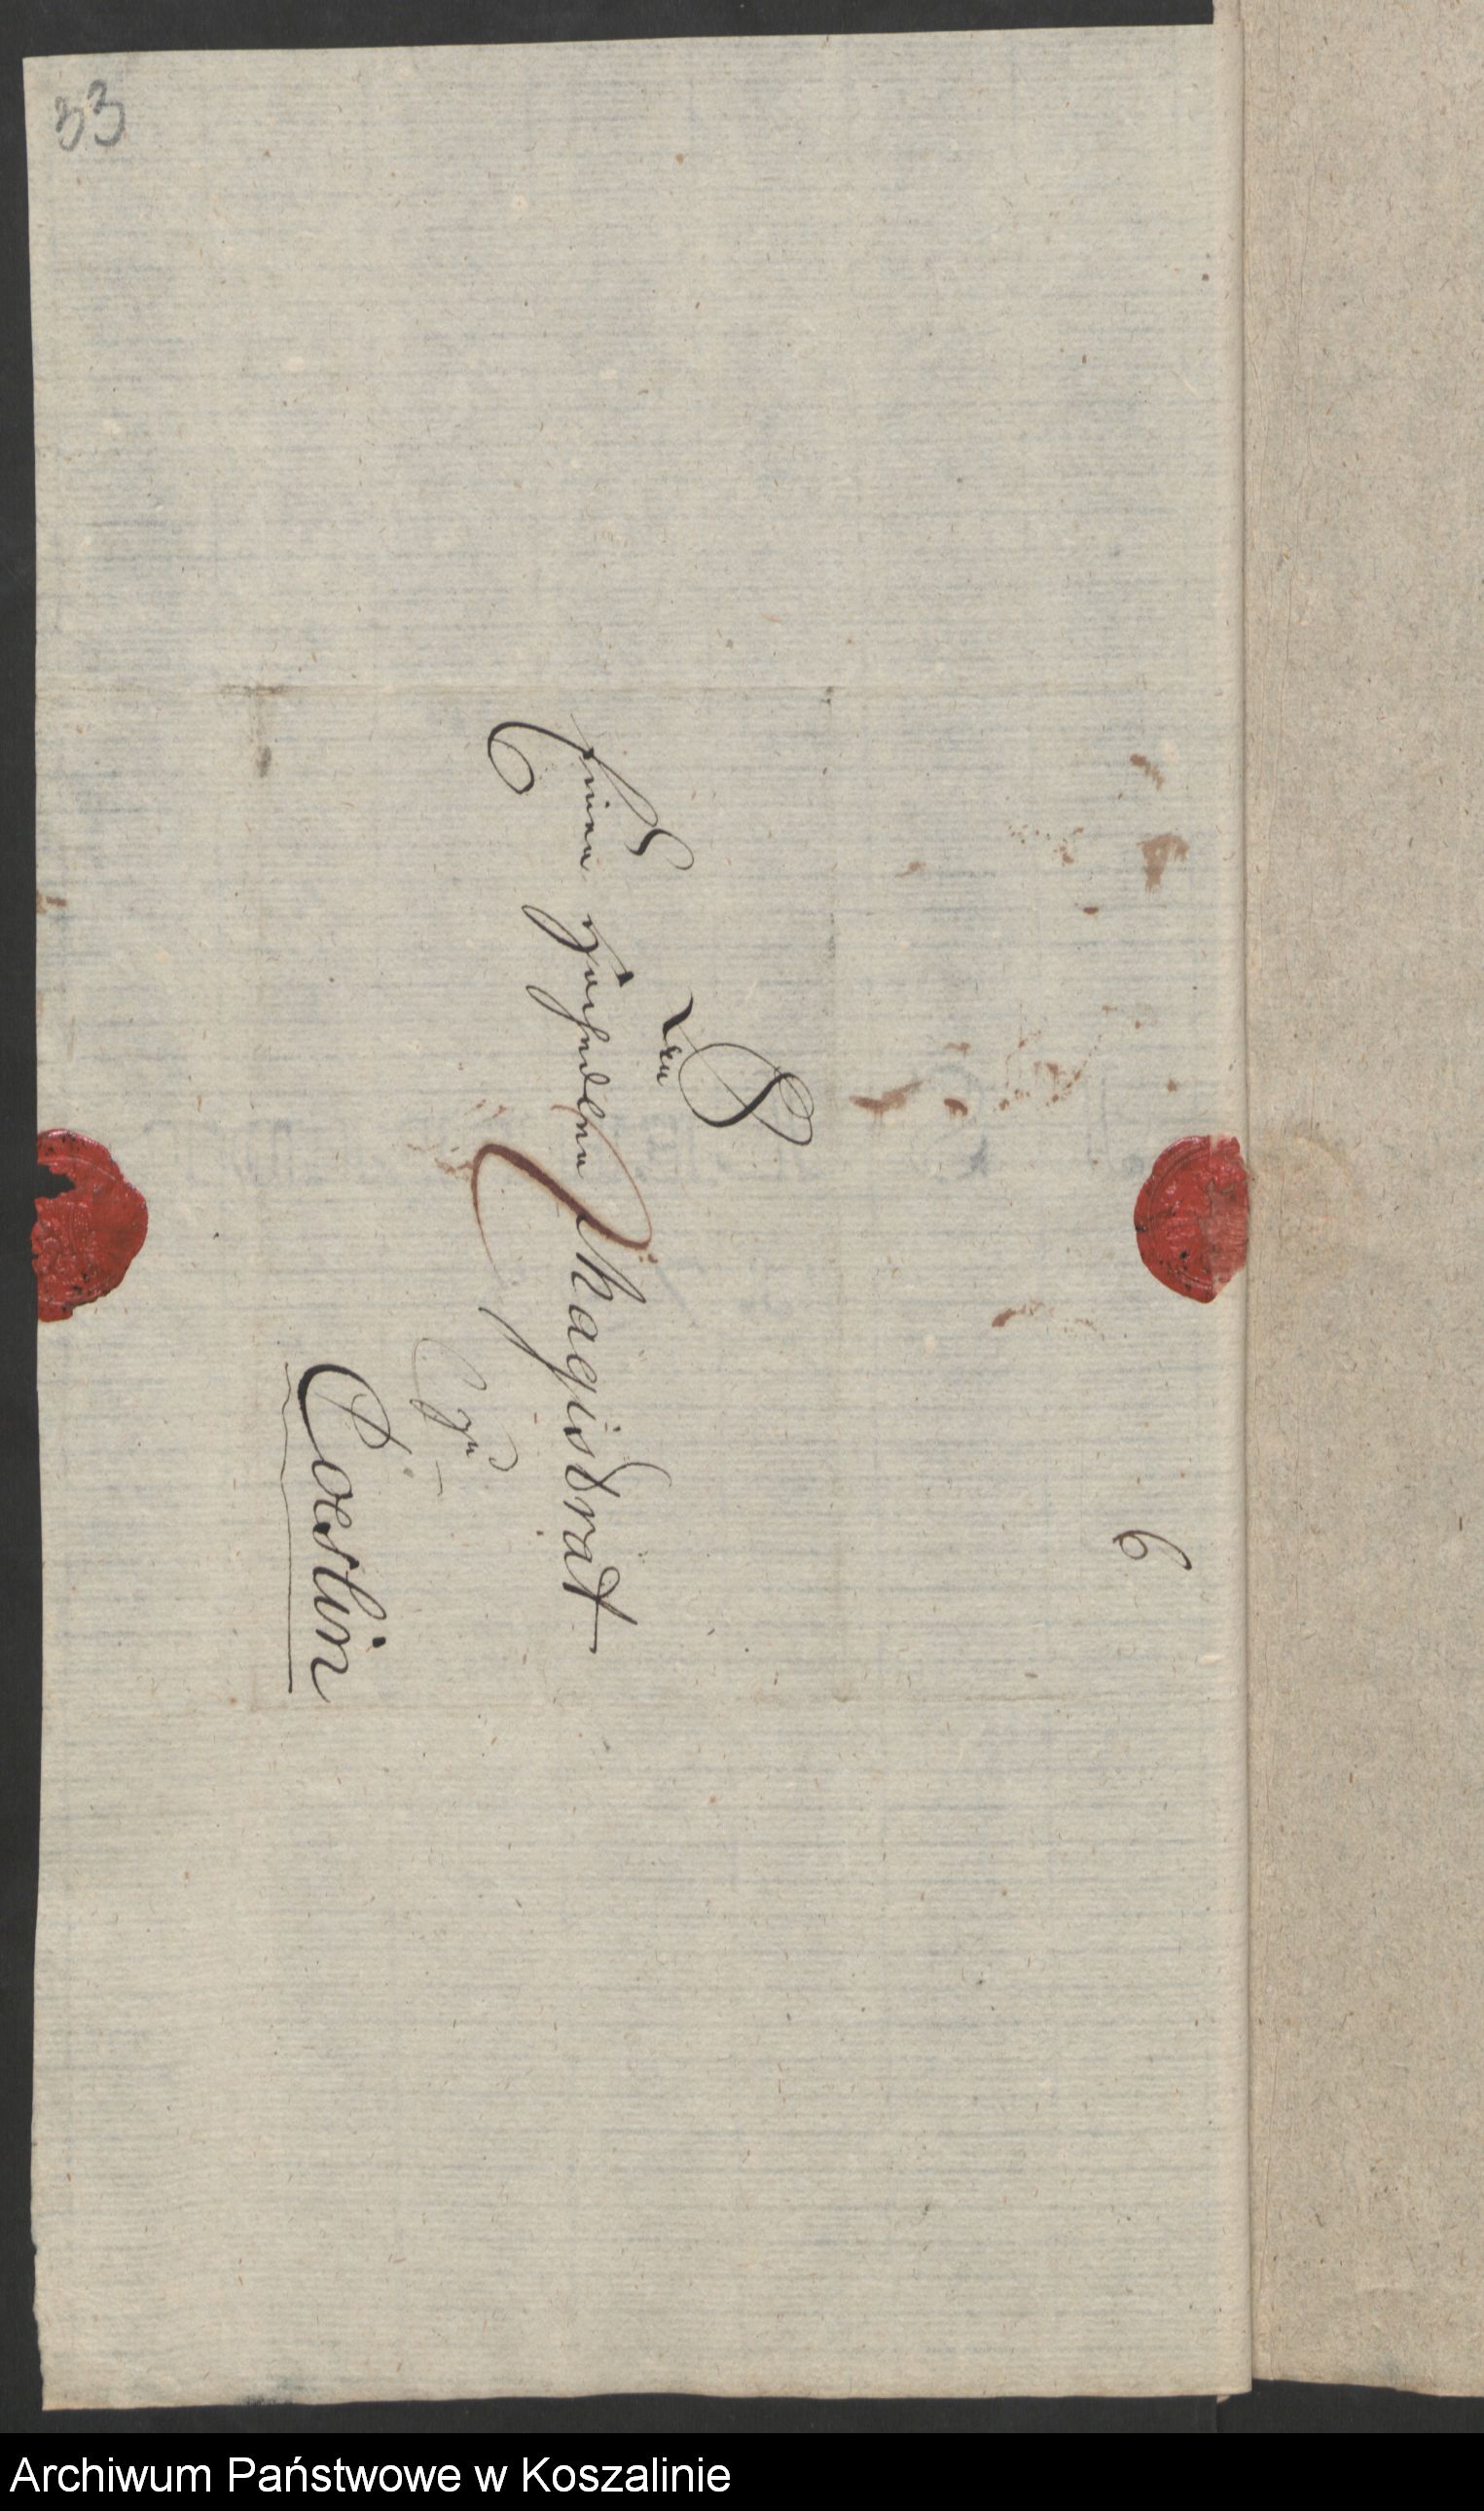 33
6
An
Einen Hochedlen Magistrat
zu
Coeslin
Archiwum Państwowe w Koszalinie